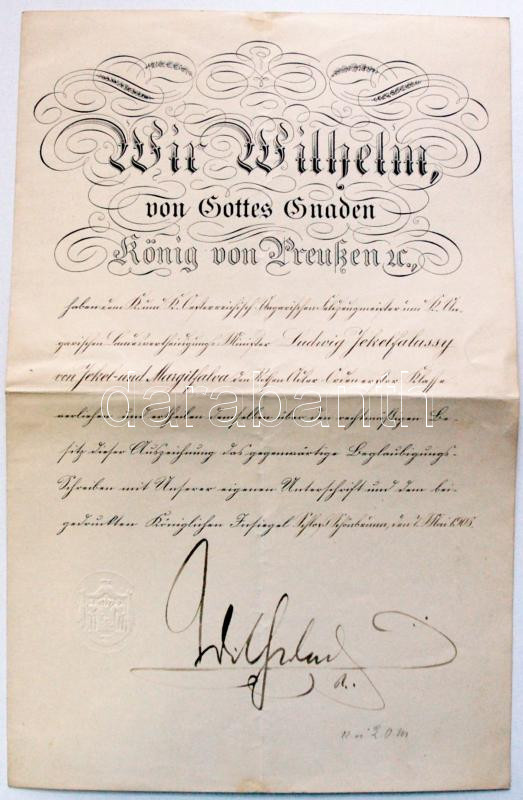 Wir Wilhelm,
von Gottes Gnaden
König von Preußen ꝛc.,
haben dem K. und K. Oesterreichisch-Ungarischen Feldzeugmeister und K. Un-
garischen Landesvertheidigungs-Minister Ludwig Jekelfalussy
von Jekel- und Margitfalva den Rothen Adler-Orden erster Klasse
verliehen und ertheilen demselben über den rechtmäßigen Be-
sitz dieser Auszeichnung das gegenwärtige Beglaubigungs-
Schreiben mit Unserer eigenen Unterschrift und dem bei-
gedruckten Königlichen Insiegel. Schloß Schönbrunn, den 7. Mai 1908.
Wilhelm
R.
databank